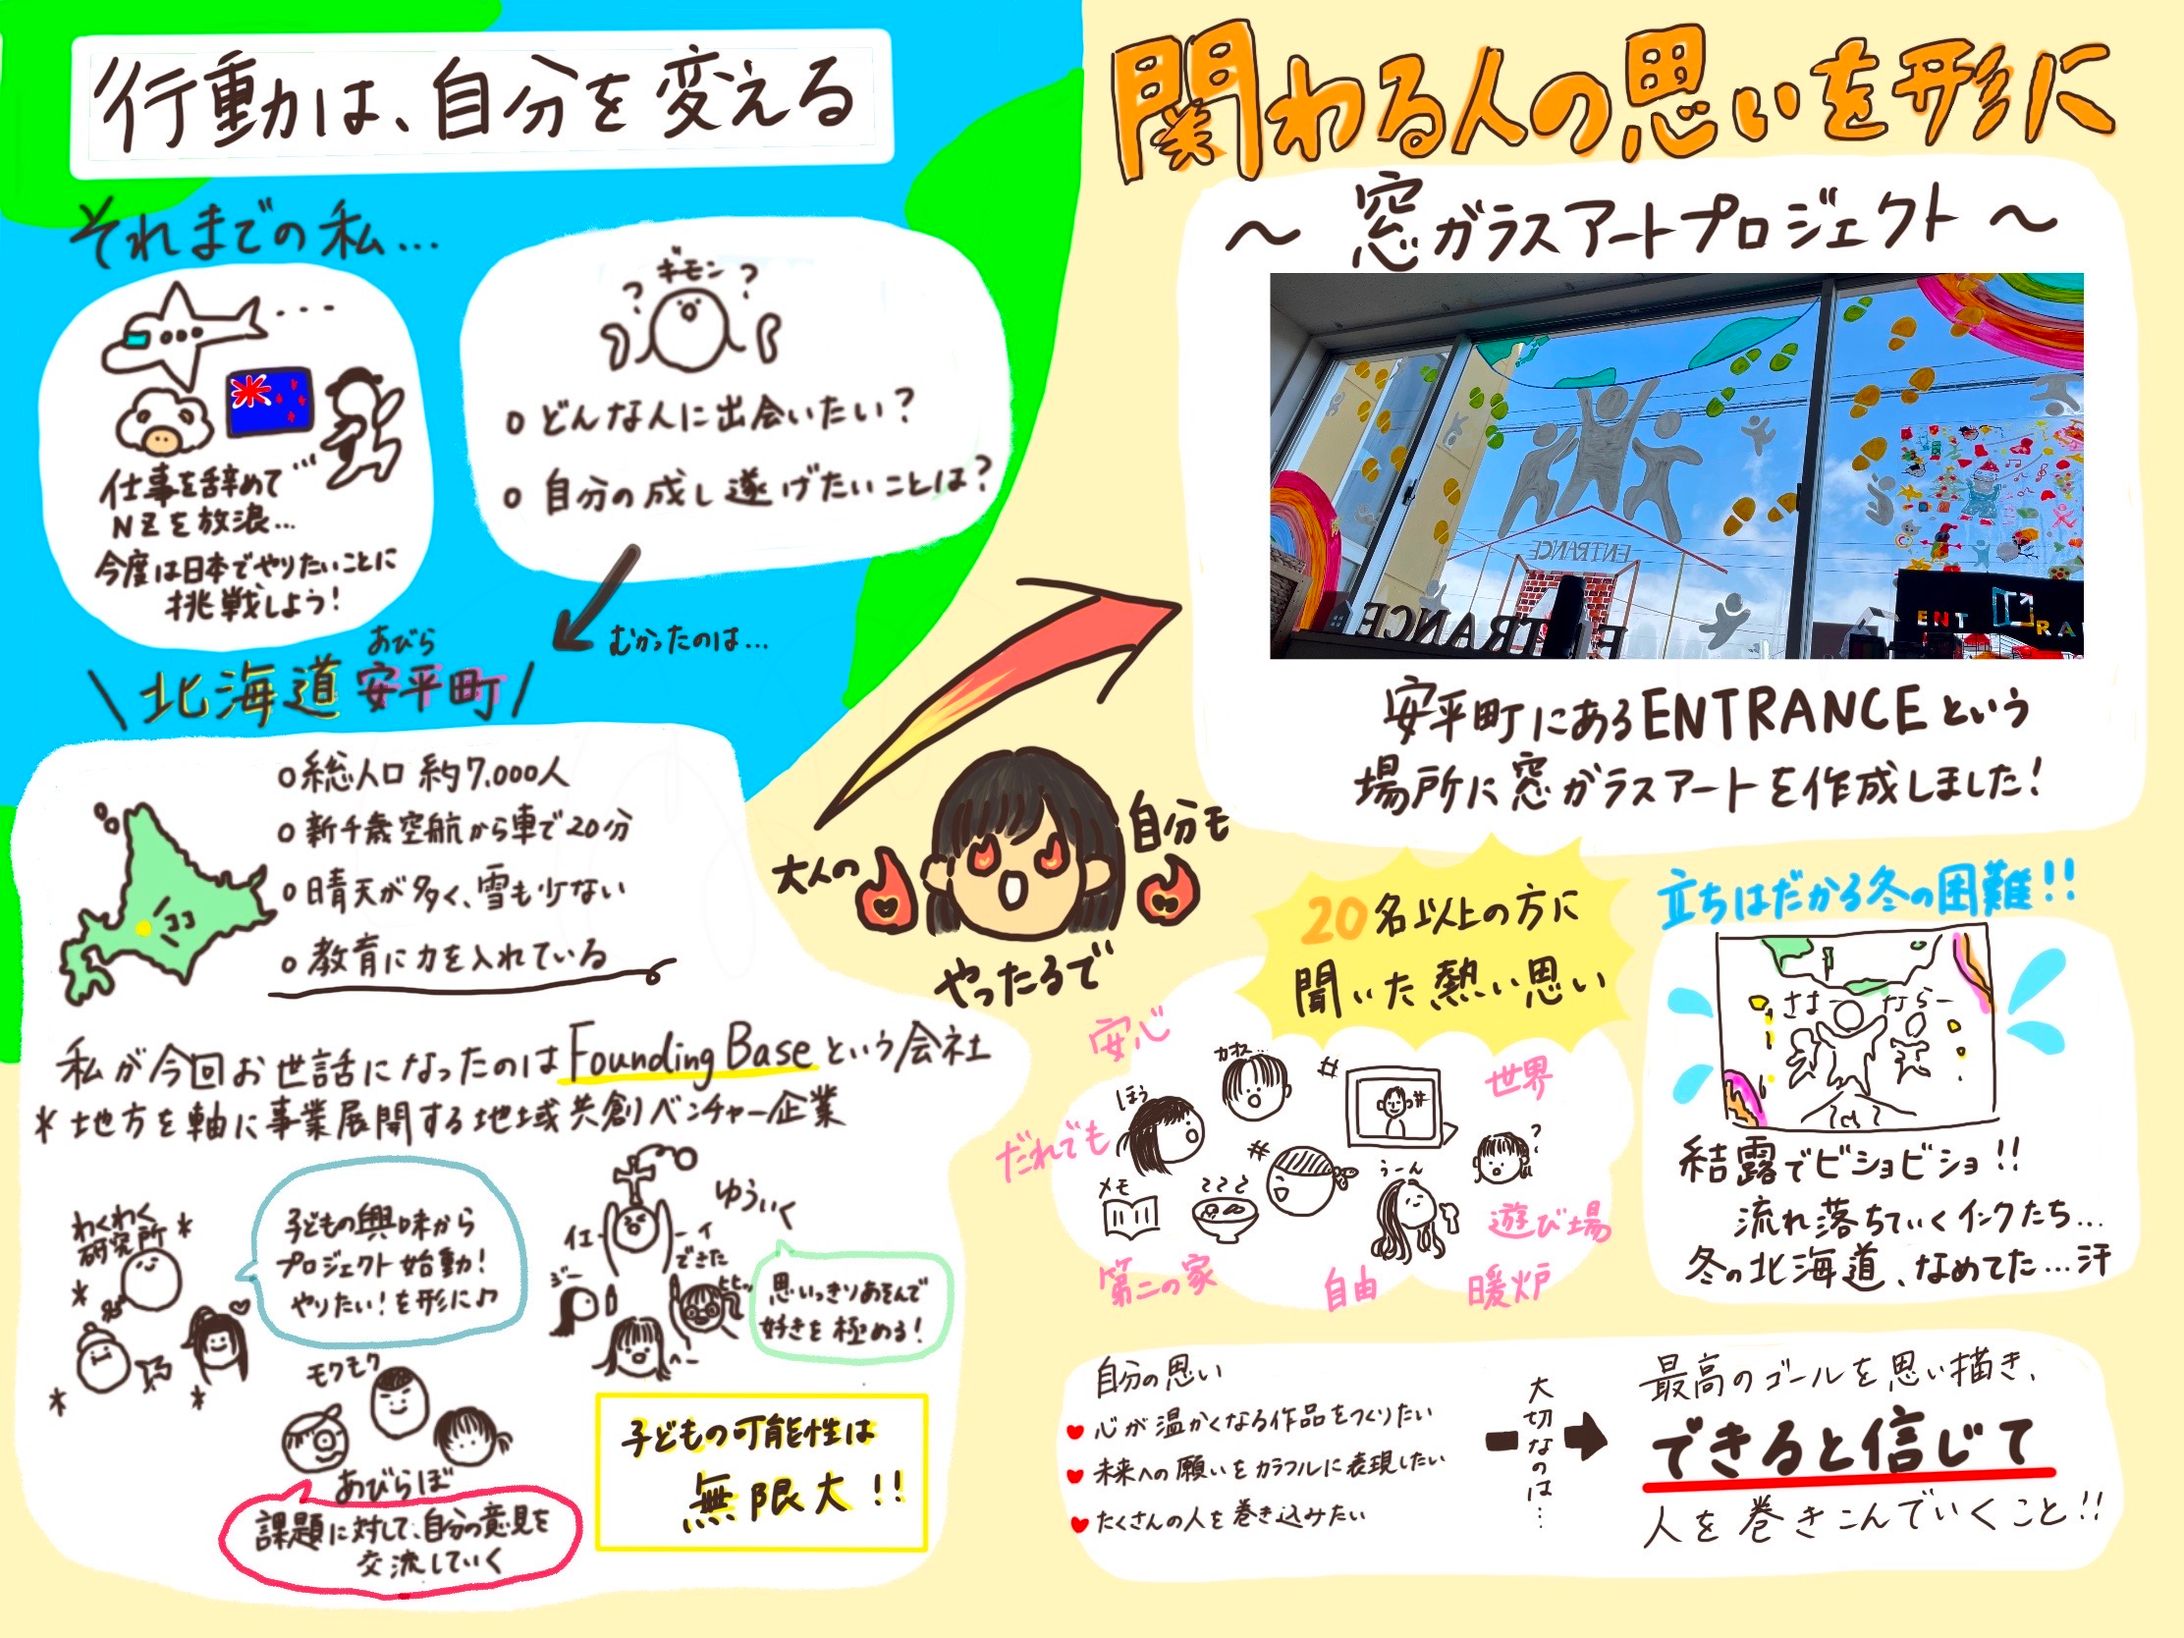 行動は、自分を変える
それまでの私...
仕事を辞めて
NZを放浪...
今度は日本でやりたいことに
挑戦しよう!
ギモン
? ?
○ どんな人に出会いたい?
○ 自分の成し遂げたいことは?
むかったのは...
あびら
\ 北海道 安平町 /
○ 総人口 約7,000人
○ 新千歳空航から車で20分
○ 日晴天が多く、雪も少ない
○ 教育に力を入れている
ココ
私が今回お世話になったのはFounding Baseという会社
* 地方を軸に事業展開する地域共創ベンチャー企業
わくわく
研究所
子どもの興味から
プロジェクト始動!
やりたい!を形に♪
ゆういく
イエーイ
できた
ジー
ヒヒッ
へー
思いっきりあそんで
好きを極める!
モクモク
あびらぼ
課題に対して、自分の意見を
交流していく
子どもの可能性は
無限大!!
大人の
自分も
やったるで
関わる人の思いを形に
〜 窓ガラスアートプロジェクト 〜
ENTRANCE
ENTRANCE
ENT RA
安平町にあるENTRANCEという
場所に窓ガラスアートを作成しました!
20名以上の方に
聞いた熱い思い
安心
だれでも
第二の家
自由
暖炉
遊び場
世界
ほう
メモ
うーん
?
立ちはだかる冬の困難!!
さよーならー
結露でビショビショ!!
流れ落ちていくインクたち...
冬の北海道、なめてた...汗
自分の思い
♥ 心が温かくなる作品をつくりたい
♥ 未来への願いをカラフルに表現したい
♥ たくさんの人を巻き込みたい
大切なのは...
最高のゴールを思い描き、
できると信じて
人を巻きこんでいくこと!!